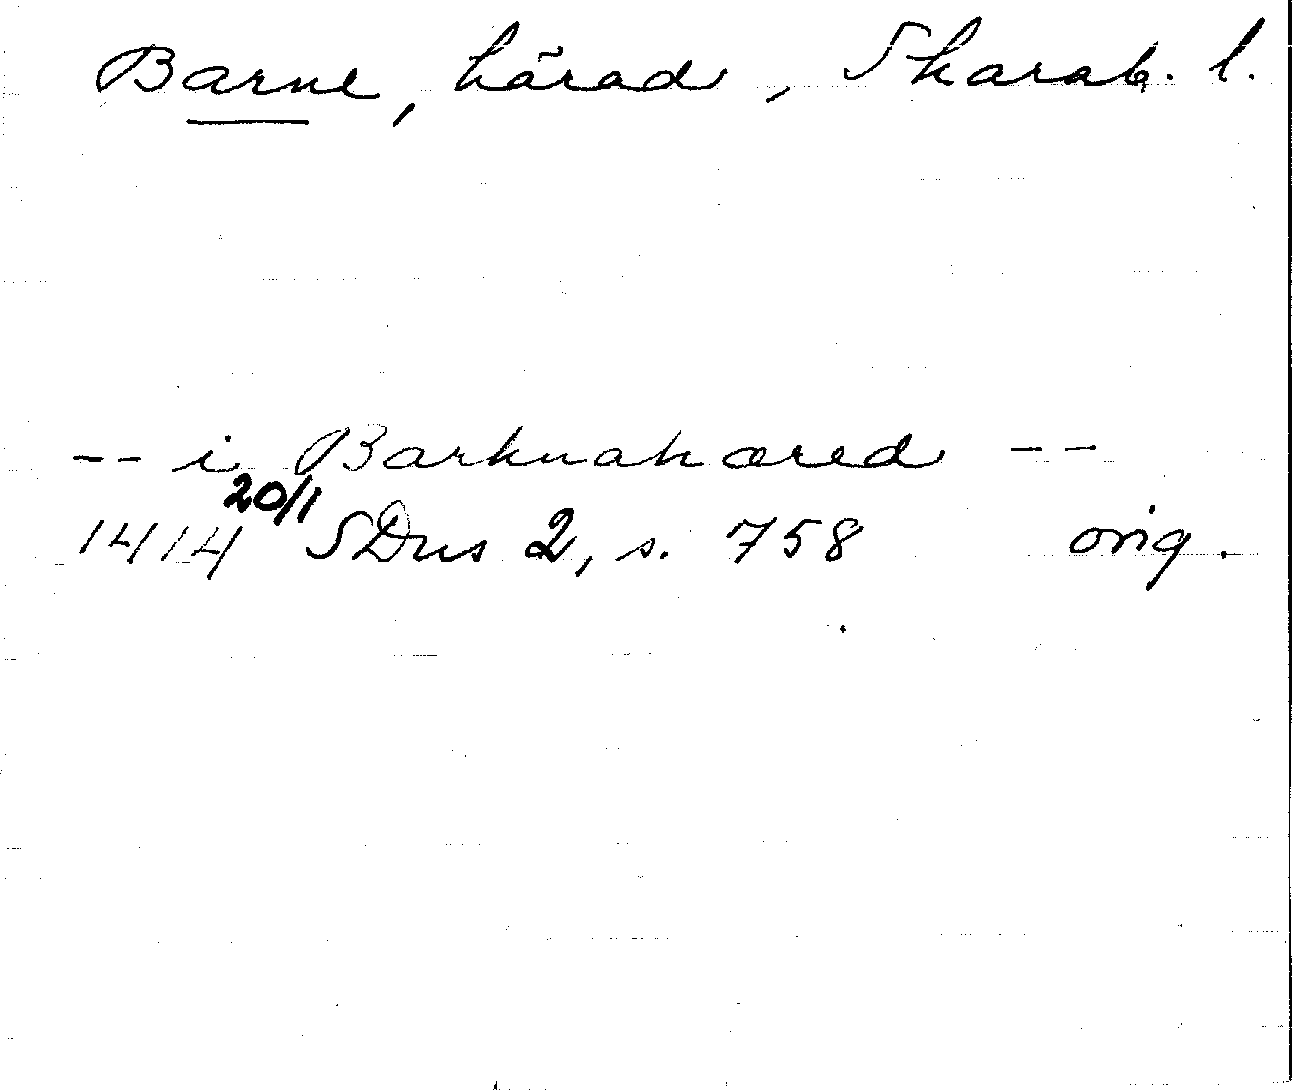 Barne, härad, Skarab. l.
-- i Barknahæred --
1414 20/1 SDns 2, s. 758 orig.